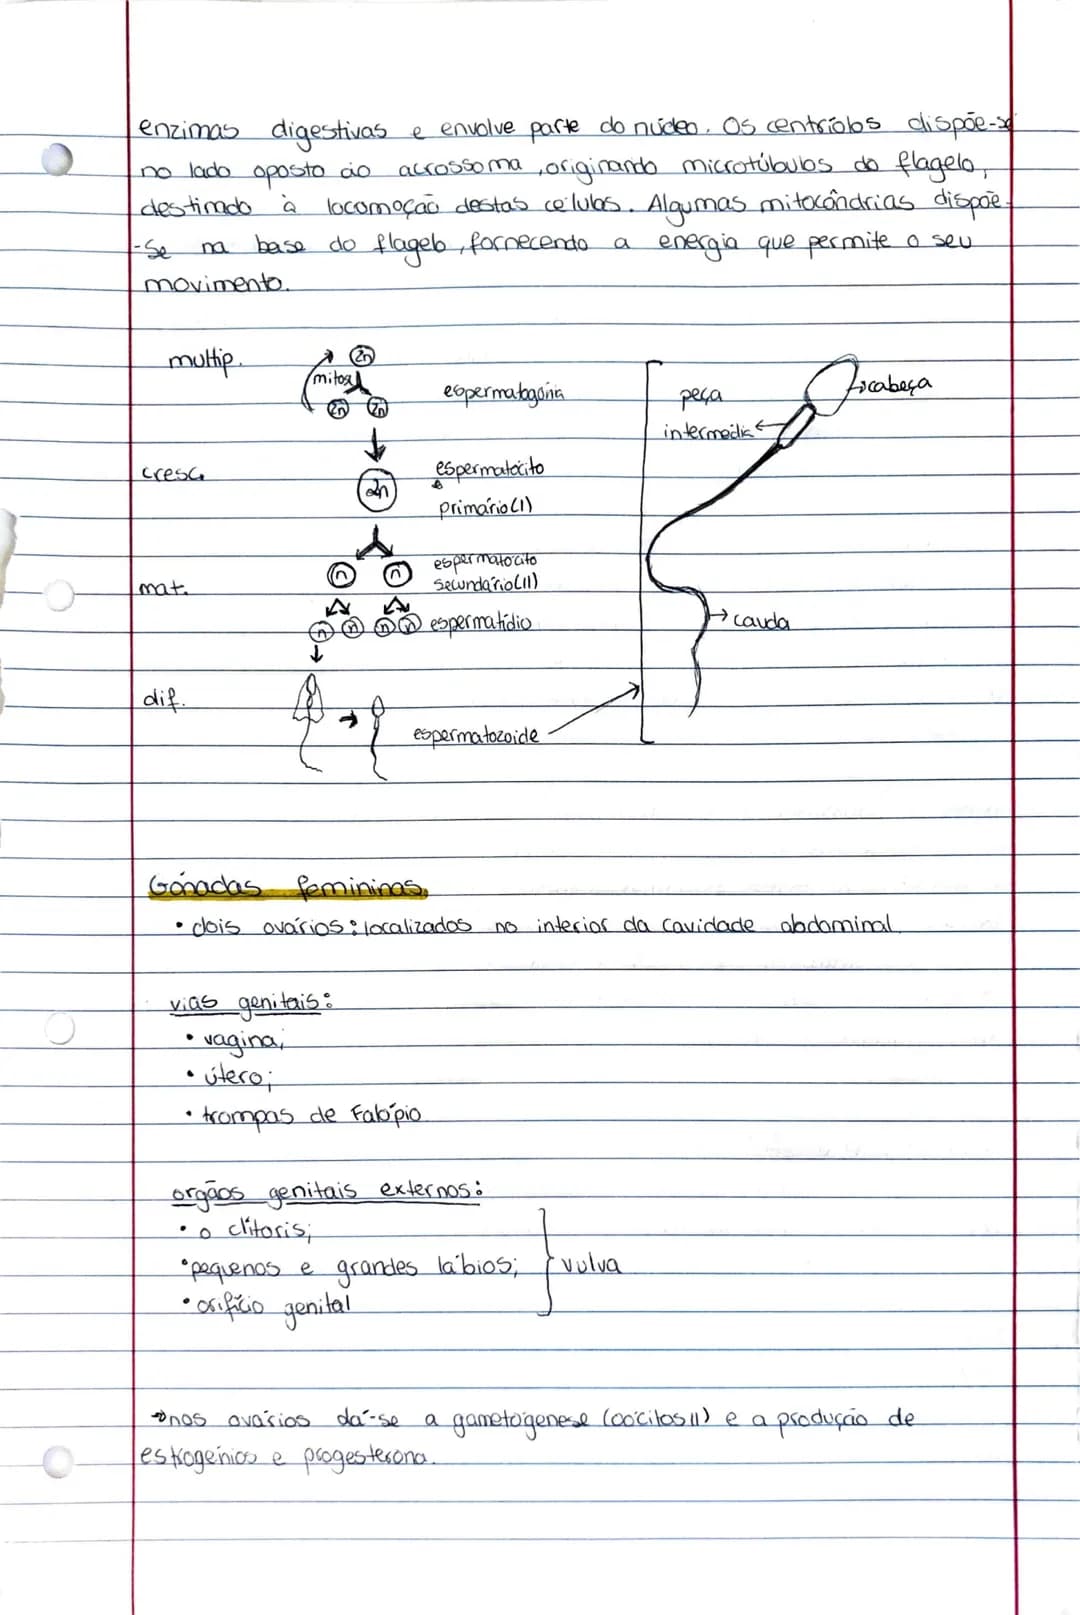 enzimas digestivas e envolve parte do núcleo. Os centríolos dispõe-se
no lado oposto ao acrossoma, originando microtúbulos do flagelo,
destinado à locomoção destas células. Algumas mitocôndrias dispõe-
-se na base do flagelo, fornecendo a energia que permite o seu
movimento.
multip.
2n
mitose
2n 2n
espermatogónia
cresc.
2n
espermatócito
primário (I)
mat.
n n
espermatócito
secundário (II)
n n n n espermatídio
dif.
espermatozoide
peça
intermédia
cabeça
cauda
Gónadas femininas
• dois ovários: localizados no interior da cavidade abdominal.
vias genitais:
• vagina;
• útero;
• trompas de Falópio.
orgãos genitais externos:
• o clítoris;
• pequenos e grandes lábios;
• orifício genital
vulva
→ nos ovários dá-se a gametogénese (oócitos II) e a produção de
estrogénios e progesterona.